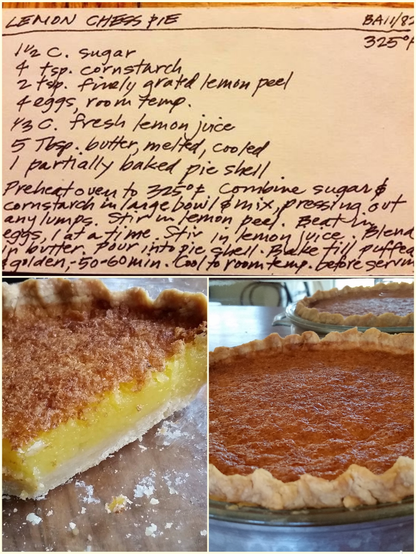 LEMON CHESS PIE BA11/82
325°F
1½ C. sugar
4 tsp. cornstarch
2 tsp. finely gratd lemon peel
4 eggs, room temp.
1/3 C. fresh lemon juice
5 Tbsp. butter, melted, cooled
1 partially baked pie shell
Preheat oven to 325°F. Combine sugar &
cornstarch in large bowl & mix, pressing out
any lumps. Stir in lemon peel. Beat in
eggs, 1 at a time. Stir in lemon juice. Blend
in butter. Pour into pie shell. Bake till puffed
& golden, 50-60 min. Cool to room temp. before servin